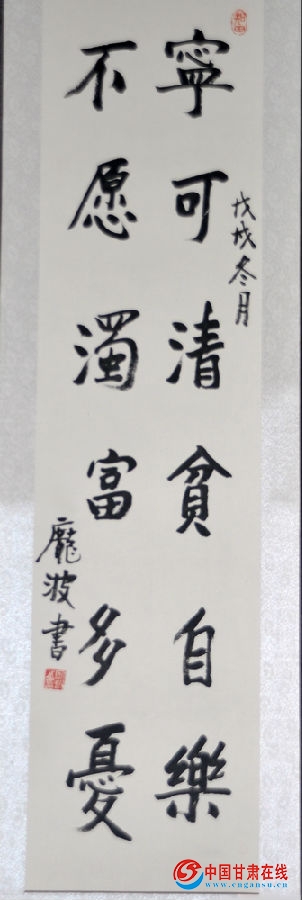 戊戌冬月
寧可清貧自樂
不愿濁富多憂
龐波書
中国甘肃在线
www.cngansu.cn